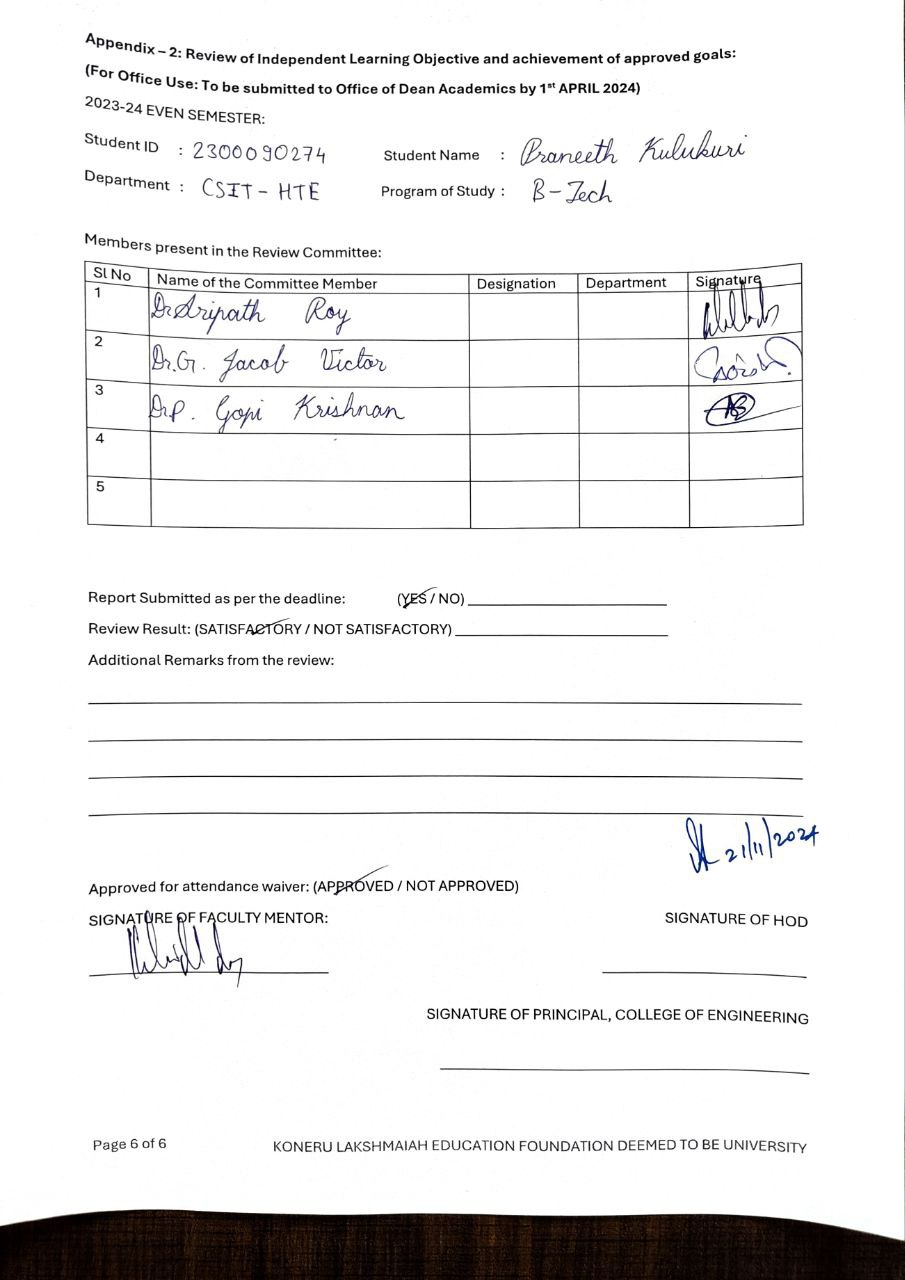 Appendix – 2: Review of Independent Learning Objective and achievement of approved goals:
(For Office Use: To be submitted to Office of Dean Academics by 1st APRIL 2024)
2023-24 EVEN SEMESTER:
Student ID : 2300090274 Student Name : Praneeth Kulukuri
Department : CSIT - HTE Program of Study : B-Tech
Members present in the Review Committee:
Sl No Name of the Committee Member Designation Department Signature
1 Dr Sripath Roy
2 Dr.G. Jacob Victor
3 Dr.P. Gopi Krishnan
4
5
Report Submitted as per the deadline: (YES / NO)
Review Result: (SATISFACTORY / NOT SATISFACTORY)
Additional Remarks from the review:
21/11/2024
Approved for attendance waiver: (APPROVED / NOT APPROVED)
SIGNATURE OF FACULTY MENTOR: SIGNATURE OF HOD
SIGNATURE OF PRINCIPAL, COLLEGE OF ENGINEERING
Page 6 of 6 KONERU LAKSHMAIAH EDUCATION FOUNDATION DEEMED TO BE UNIVERSITY